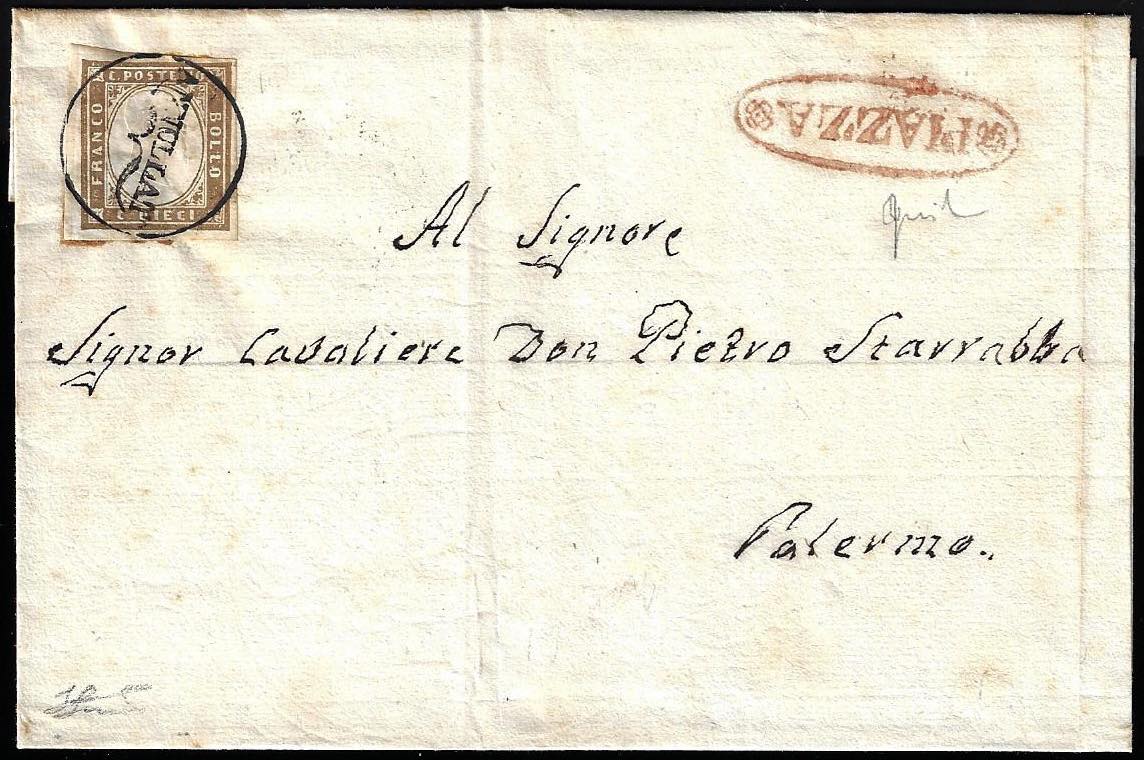 C. POSTE
FRANCO
BOLLO
C. DIECI
ANNULLATO
PIAZZA
Al Signore
Signor Cavaliere Don Pietro Starrabba
Palermo.